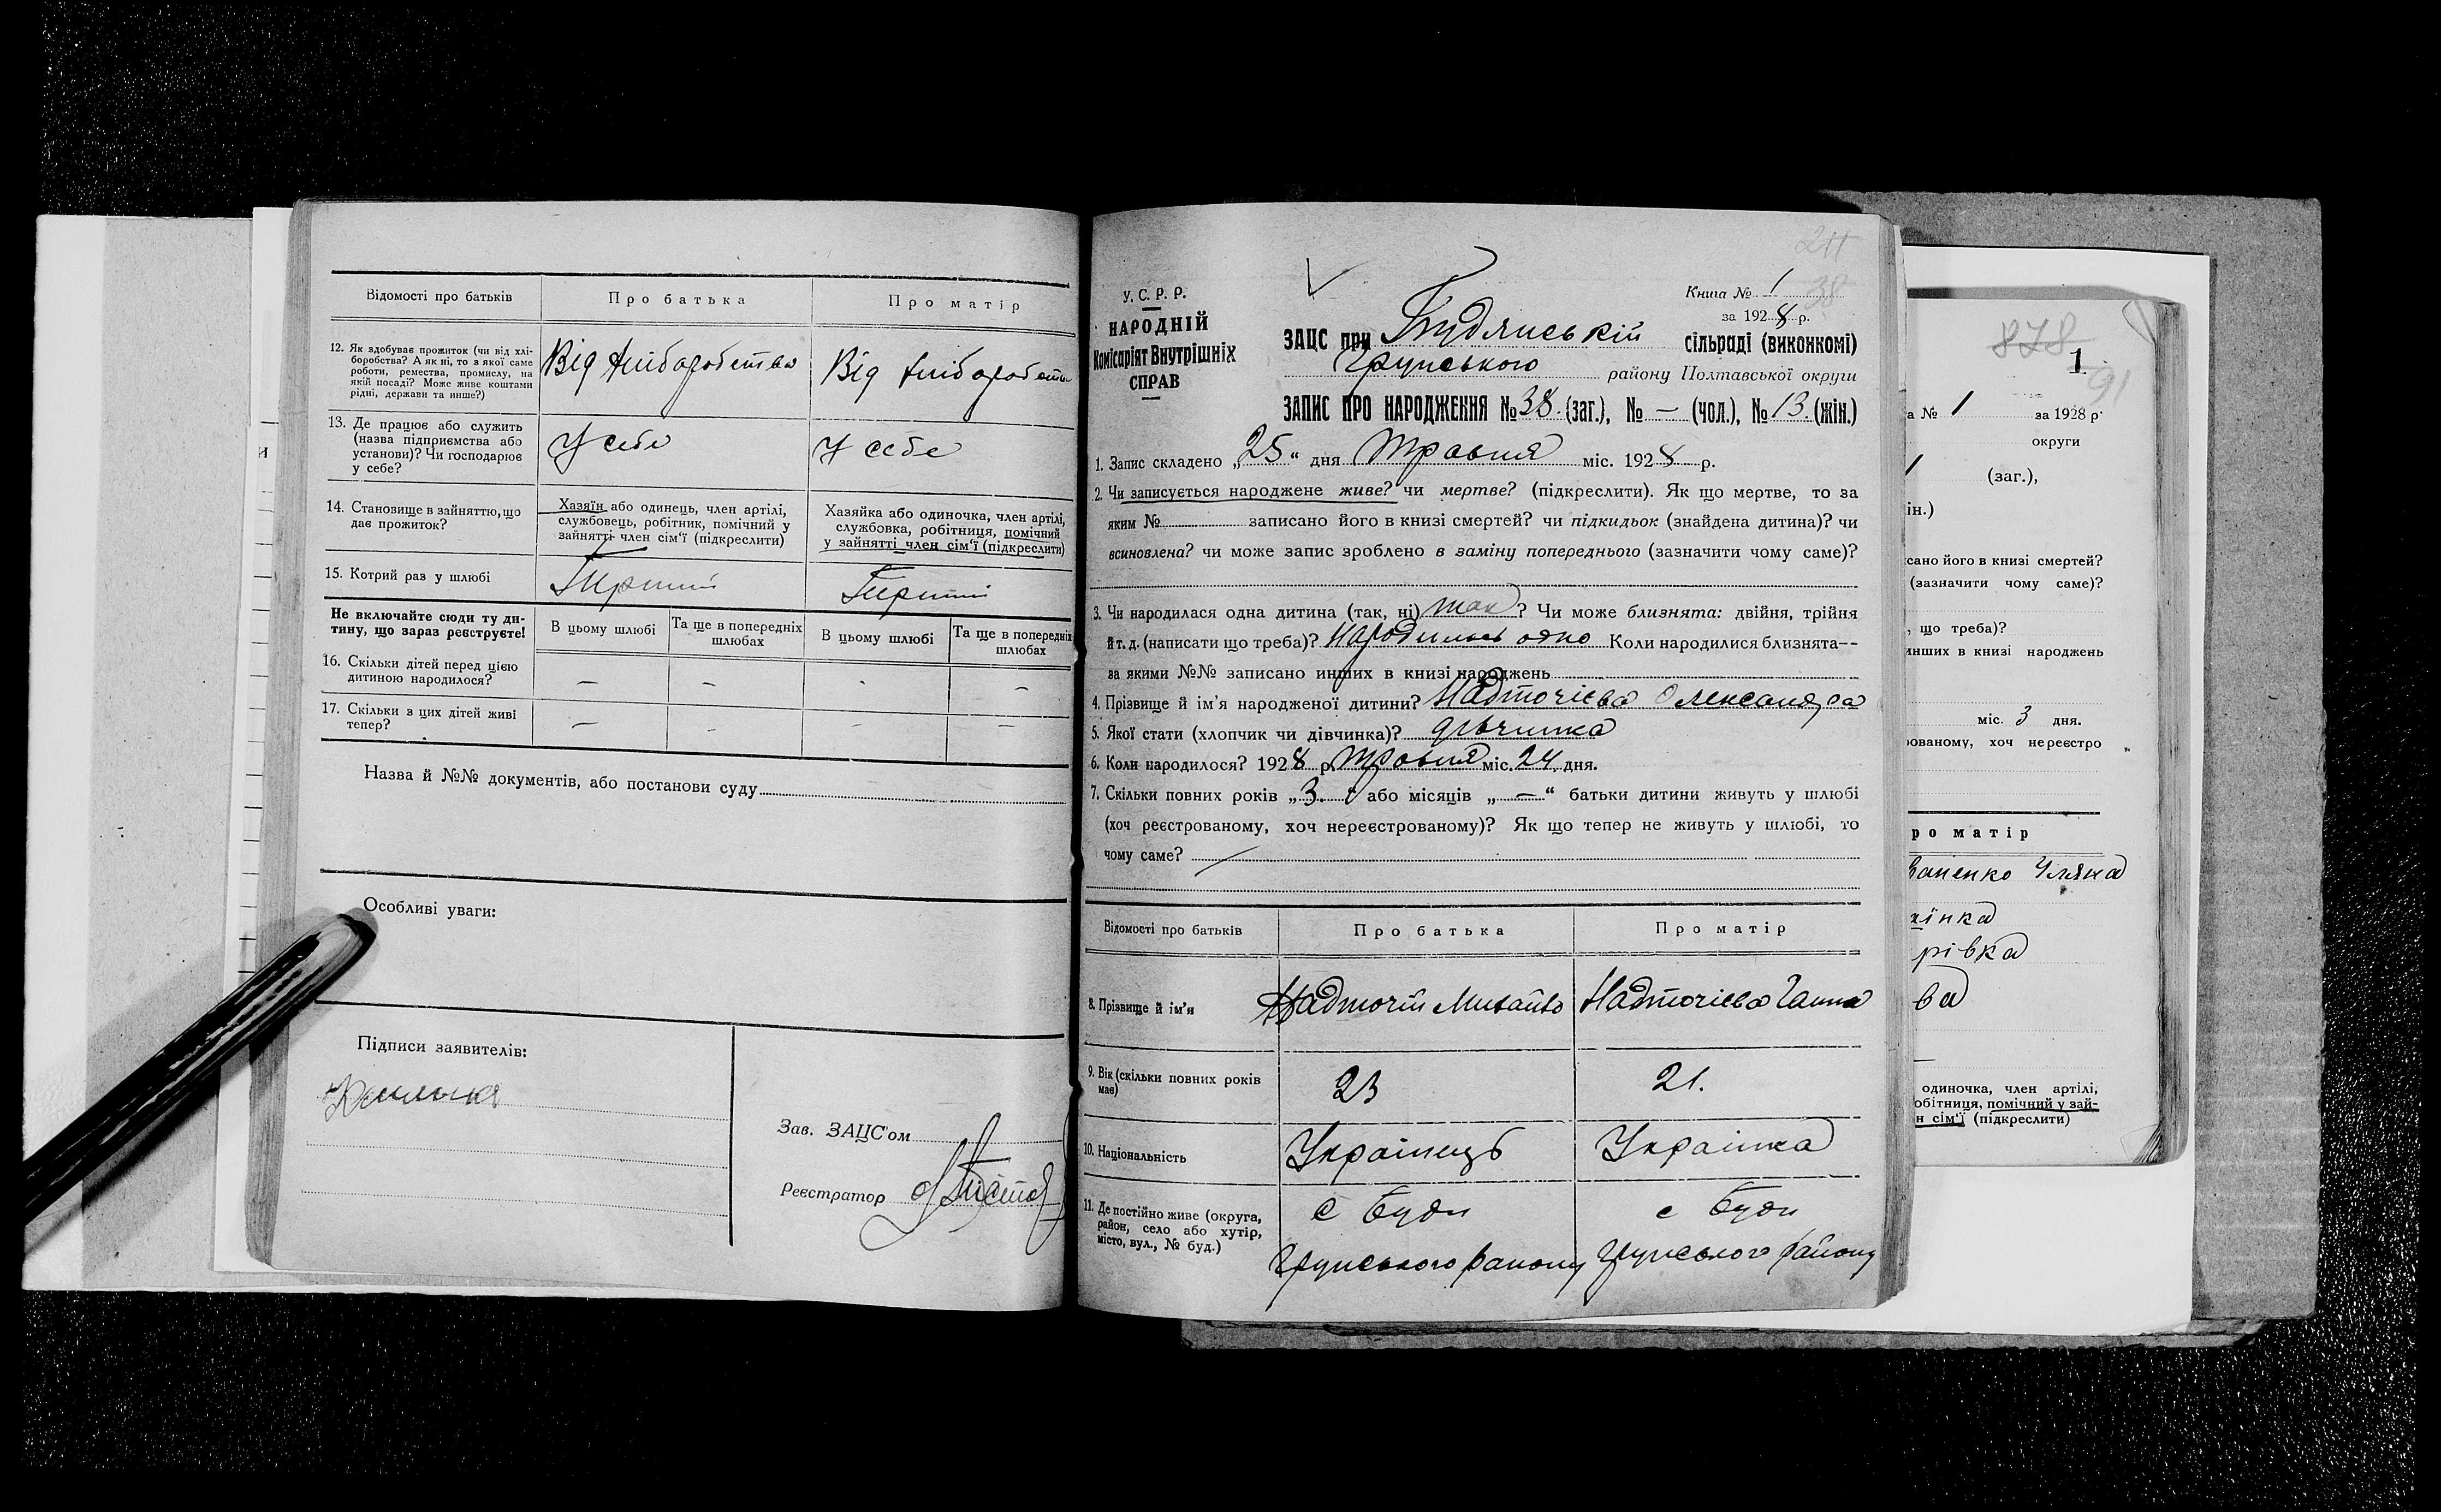 Відомості про батьків
Про батька
Про матір
12. Як здобуває прожиток (чи від хлі-
боробства? А як ні, то з якої саме
роботи, ремества, промислу, на
якій посаді? Може живе коштами
рідні, держави та инше?)
Від хліборобства
Від хліборобств
13. Де працює або служить
(назва підприємства або
установи)? Чи господарює
у себе?
У себе
У себе
14. Становище в зайняттю, що
дає прожиток?
Хазяїн або одинець, член артілі,
службовець, робітник, помічний у
зайнятті член сім'ї (підкреслити)
Хазяйка або одиночка, член артілі,
службовка, робітниця, помічний
у зайнятті член сім'ї (підкреслити)
15. Котрий раз у шлюбі
Перший
Перший
Не включайте сюди ту ди-
тину, що зараз реєструєте!
В цьому шлюбі
Та ще в попередніх
шлюбах
В цьому шлюбі
Та ще в попередніх
шлюбах
16. Скільки дітей перед цією
дитиною народилося?
— — - —
17. Скільки з цих дітей живі
тепер?
— - — —
Назва й №№ документів, або постанови суду
Особливі уваги:
Підписи заявителів:
Зав. ЗАЦС'ом
Реєстратор
211
38
У. С. Р. Р.
НАРОДНІЙ
Комісаріят Внутрішніх
СПРАВ
Книга № 1
за 1928 р.
ЗАЦС при Будянській сільраді (виконкомі)
Грунського району Полтавської округи
ЗАПИС ПРО НАРОДЖЕННЯ № 38 (заг.), № — (чол.), № 13 (жін.)
1. Запис складено „25“ дня Травня міс. 1928 р.
2. Чи записується народжене живе? чи мертве? (підкреслити). Як що мертве, то за
яким № записано його в книзі смертей? чи підкидьок (знайдена дитина)? чи
всиновлена? чи може запис зроблено в заміну попереднього (зазначити чому саме)?
3. Чи народилася одна дитина (так, ні) так? Чи може близнята: двійня, трійня
й т. д. (написати що треба)? Народилось одно Коли народилися близнята—
за якими №№ записано инших в книзі народжень
4. Прізвище й ім'я народженої дитини? Надточієва Олександра
5. Якої стати (хлопчик чи дівчинка)? дівчинка
6. Коли народилося? 1928 р. Травня міс. 24 дня.
7. Скільки повних років „3“ або місяців „—“ батьки дитини живуть у шлюбі
(хоч реєстрованому, хоч нереєстрованому)? Як що тепер не живуть у шлюбі, то
чому саме?
Відомості про батьків
Про батька
Про матір
8. Прізвище й ім'я
Надточій Михайло
Надточієва Ганна
9. Вік (скільки повних років
має)
23
21.
10. Національність
Українець
Українка
11. Де постійно живе (округа,
район, село або хутір,
місто, вул., № буд.)
с Буди
Грунського району
с Буди
Грунського району
878
1
91
а № 1 за 1928 р.
округи
1 (заг.),
ін.)
сано його в книзі смертей?
(зазначити чому саме)?
, що треба)?
инших в книзі народжень
міс. 3 дня.
ованому, хоч нереєстро
ро матір
ваненко Уляна
їнка
рівка
ва
одиночка, член артілі,
обітниця, помічний у зай-
н сім'ї (підкреслити)